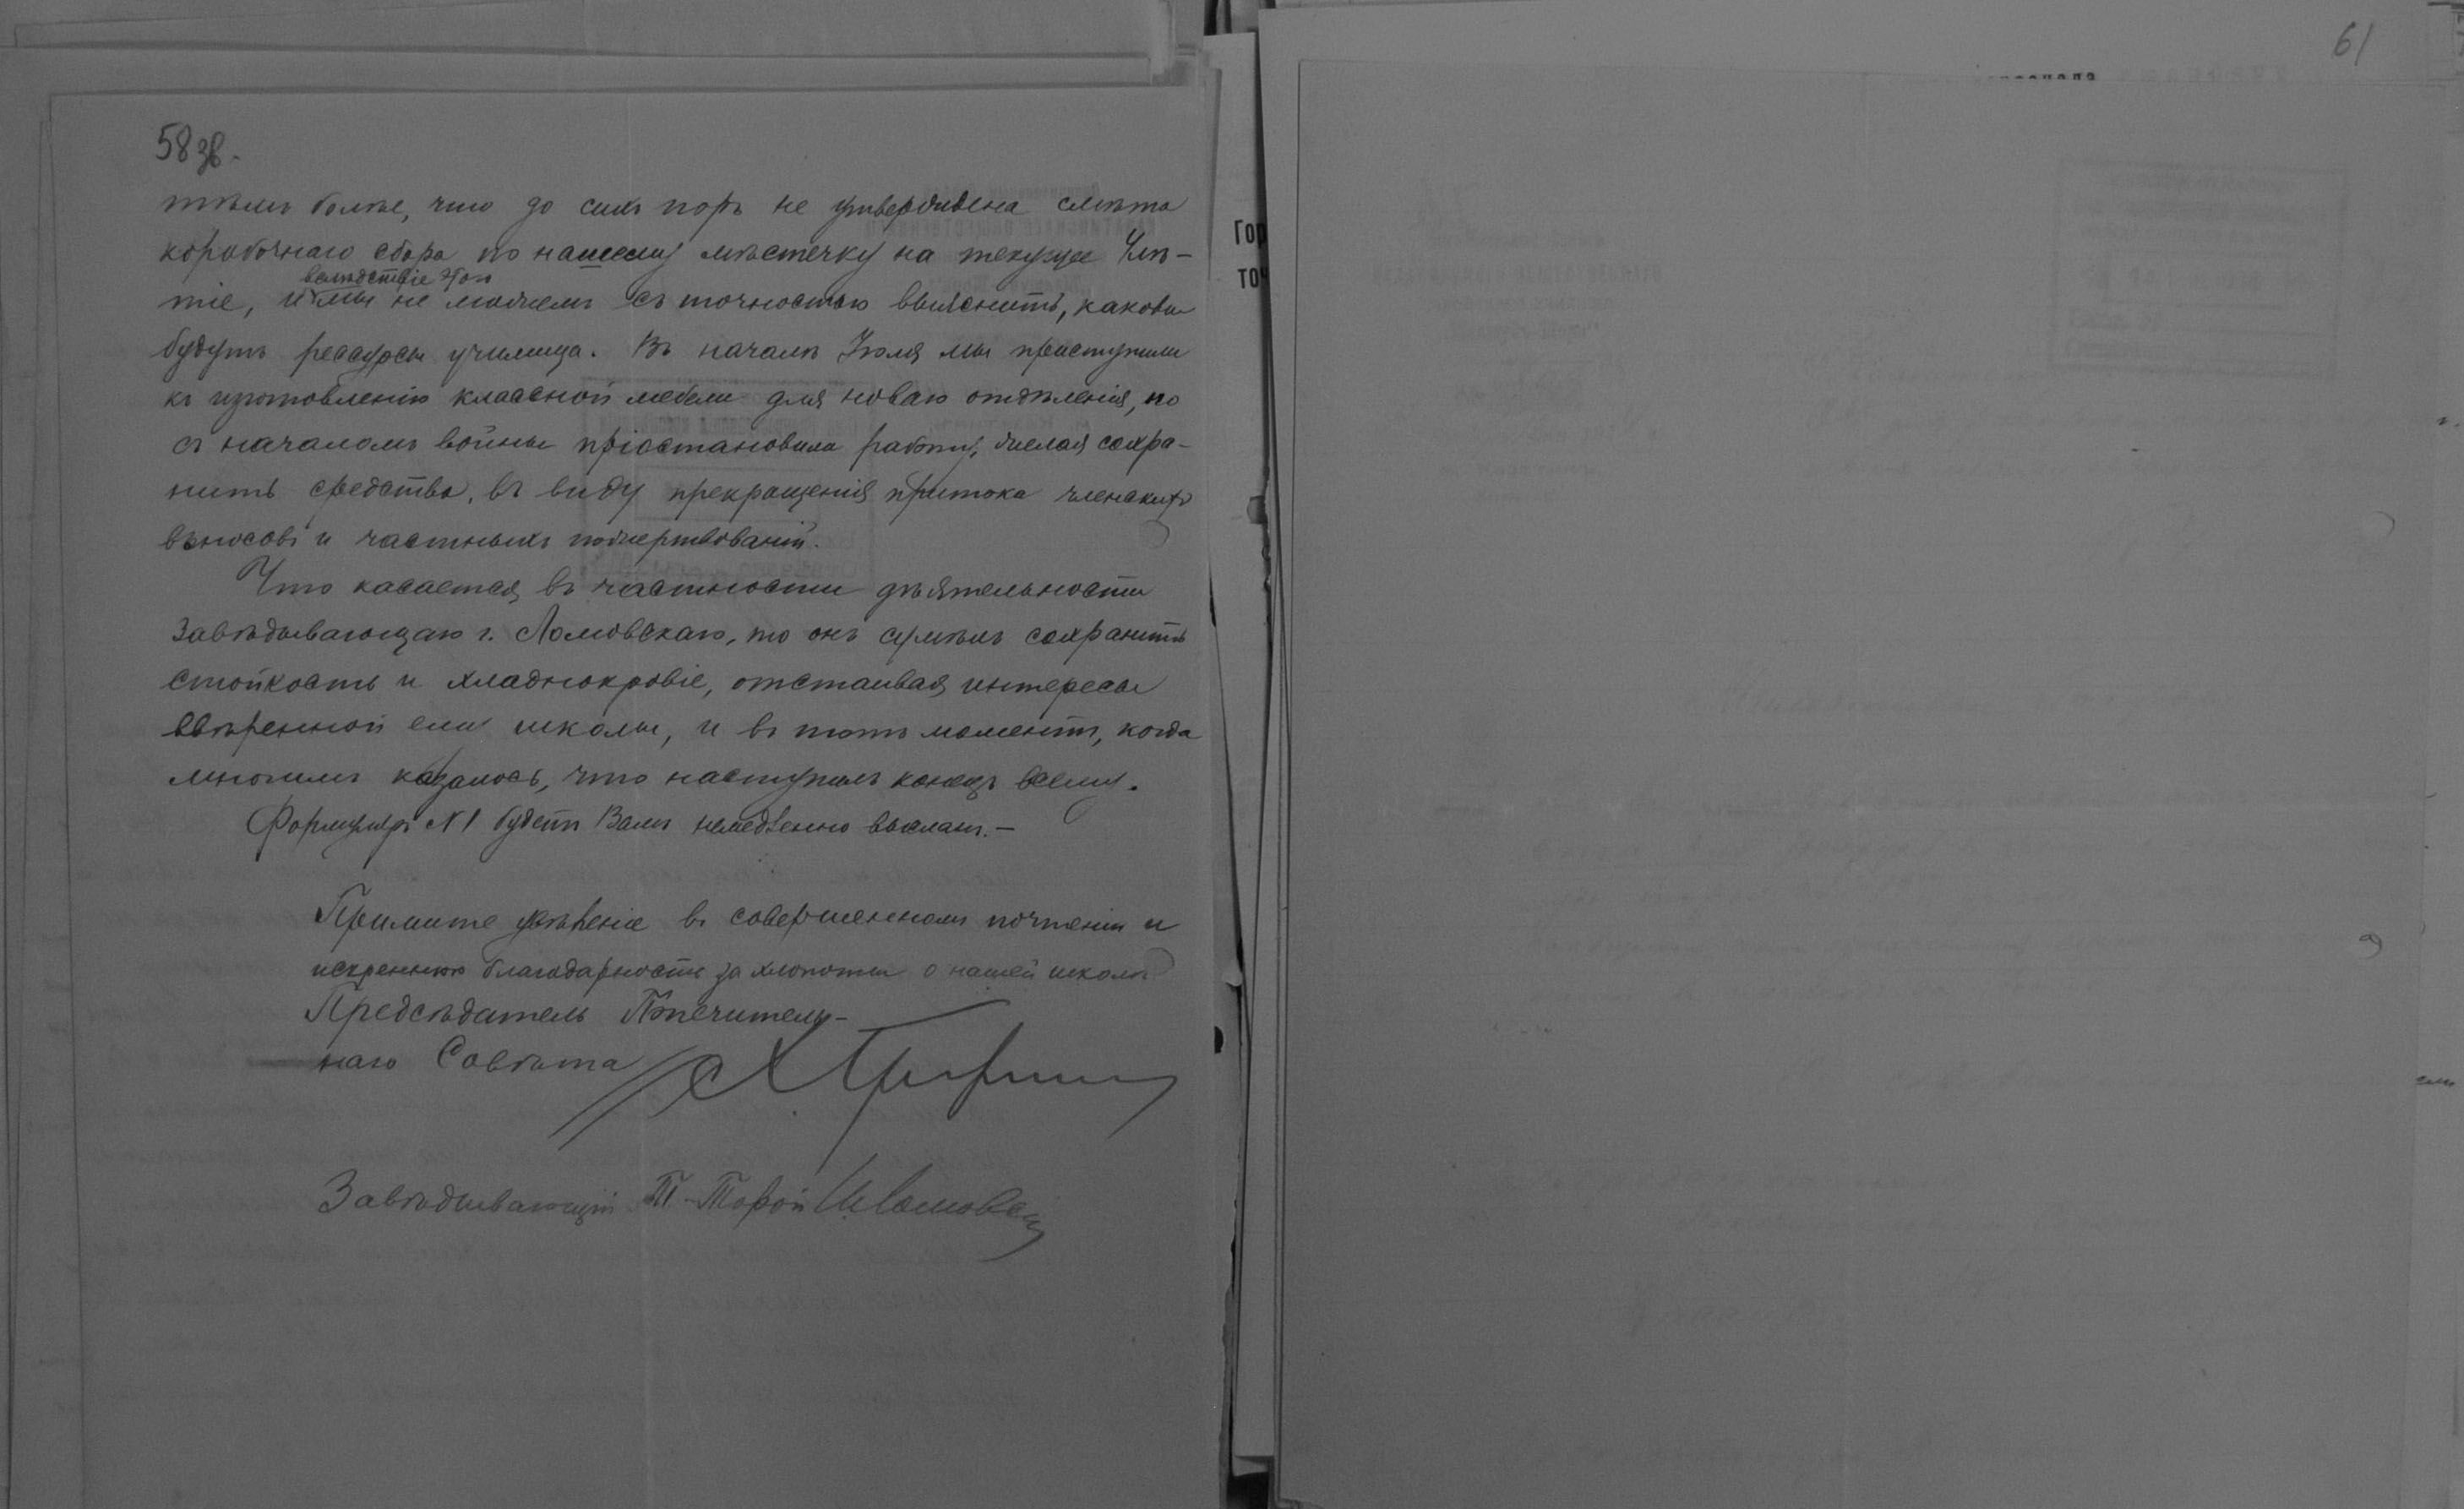 61
58 зв.
тѣмъ болѣе, что до сихъ поръ не утверждена смѣта
коробочнаго сбора по нашему мѣстечку на текущее 4лѣ-
вслѣдствіе этого
тіе, и мы не можемъ съ точностью выяснить, каковы
будутъ рессурсы училища. Въ началѣ Іюля мы приступили
къ изготовленію классной мебели для новаго отдѣленія, но
съ началомъ войны пріостановили работу, желая сохра-
нить средства, въ виду прекращенія притока членскихъ
взносовъ и частныхъ пожертвованій.
Что касается въ частности дѣятельности
Завѣдывающаго г. Ломовскаго, то онъ сумѣлъ сохранить
стойкость и хладнокровіе, отстаивая интересы
ввѣренной ему школы, и въ тотъ моментъ, когда
многимъ казалось, что наступилъ конецъ всему.
Формуляръ №1 будетъ Вамъ немедленно высланъ.—
Примите увѣреніе въ совершенномъ почтеніи и
искреннюю благодарность за хлопоты о нашей школѣ
Предсѣдатель Попечитель-
наго Совѣта
Завѣдывающій Т-Торой
Гор